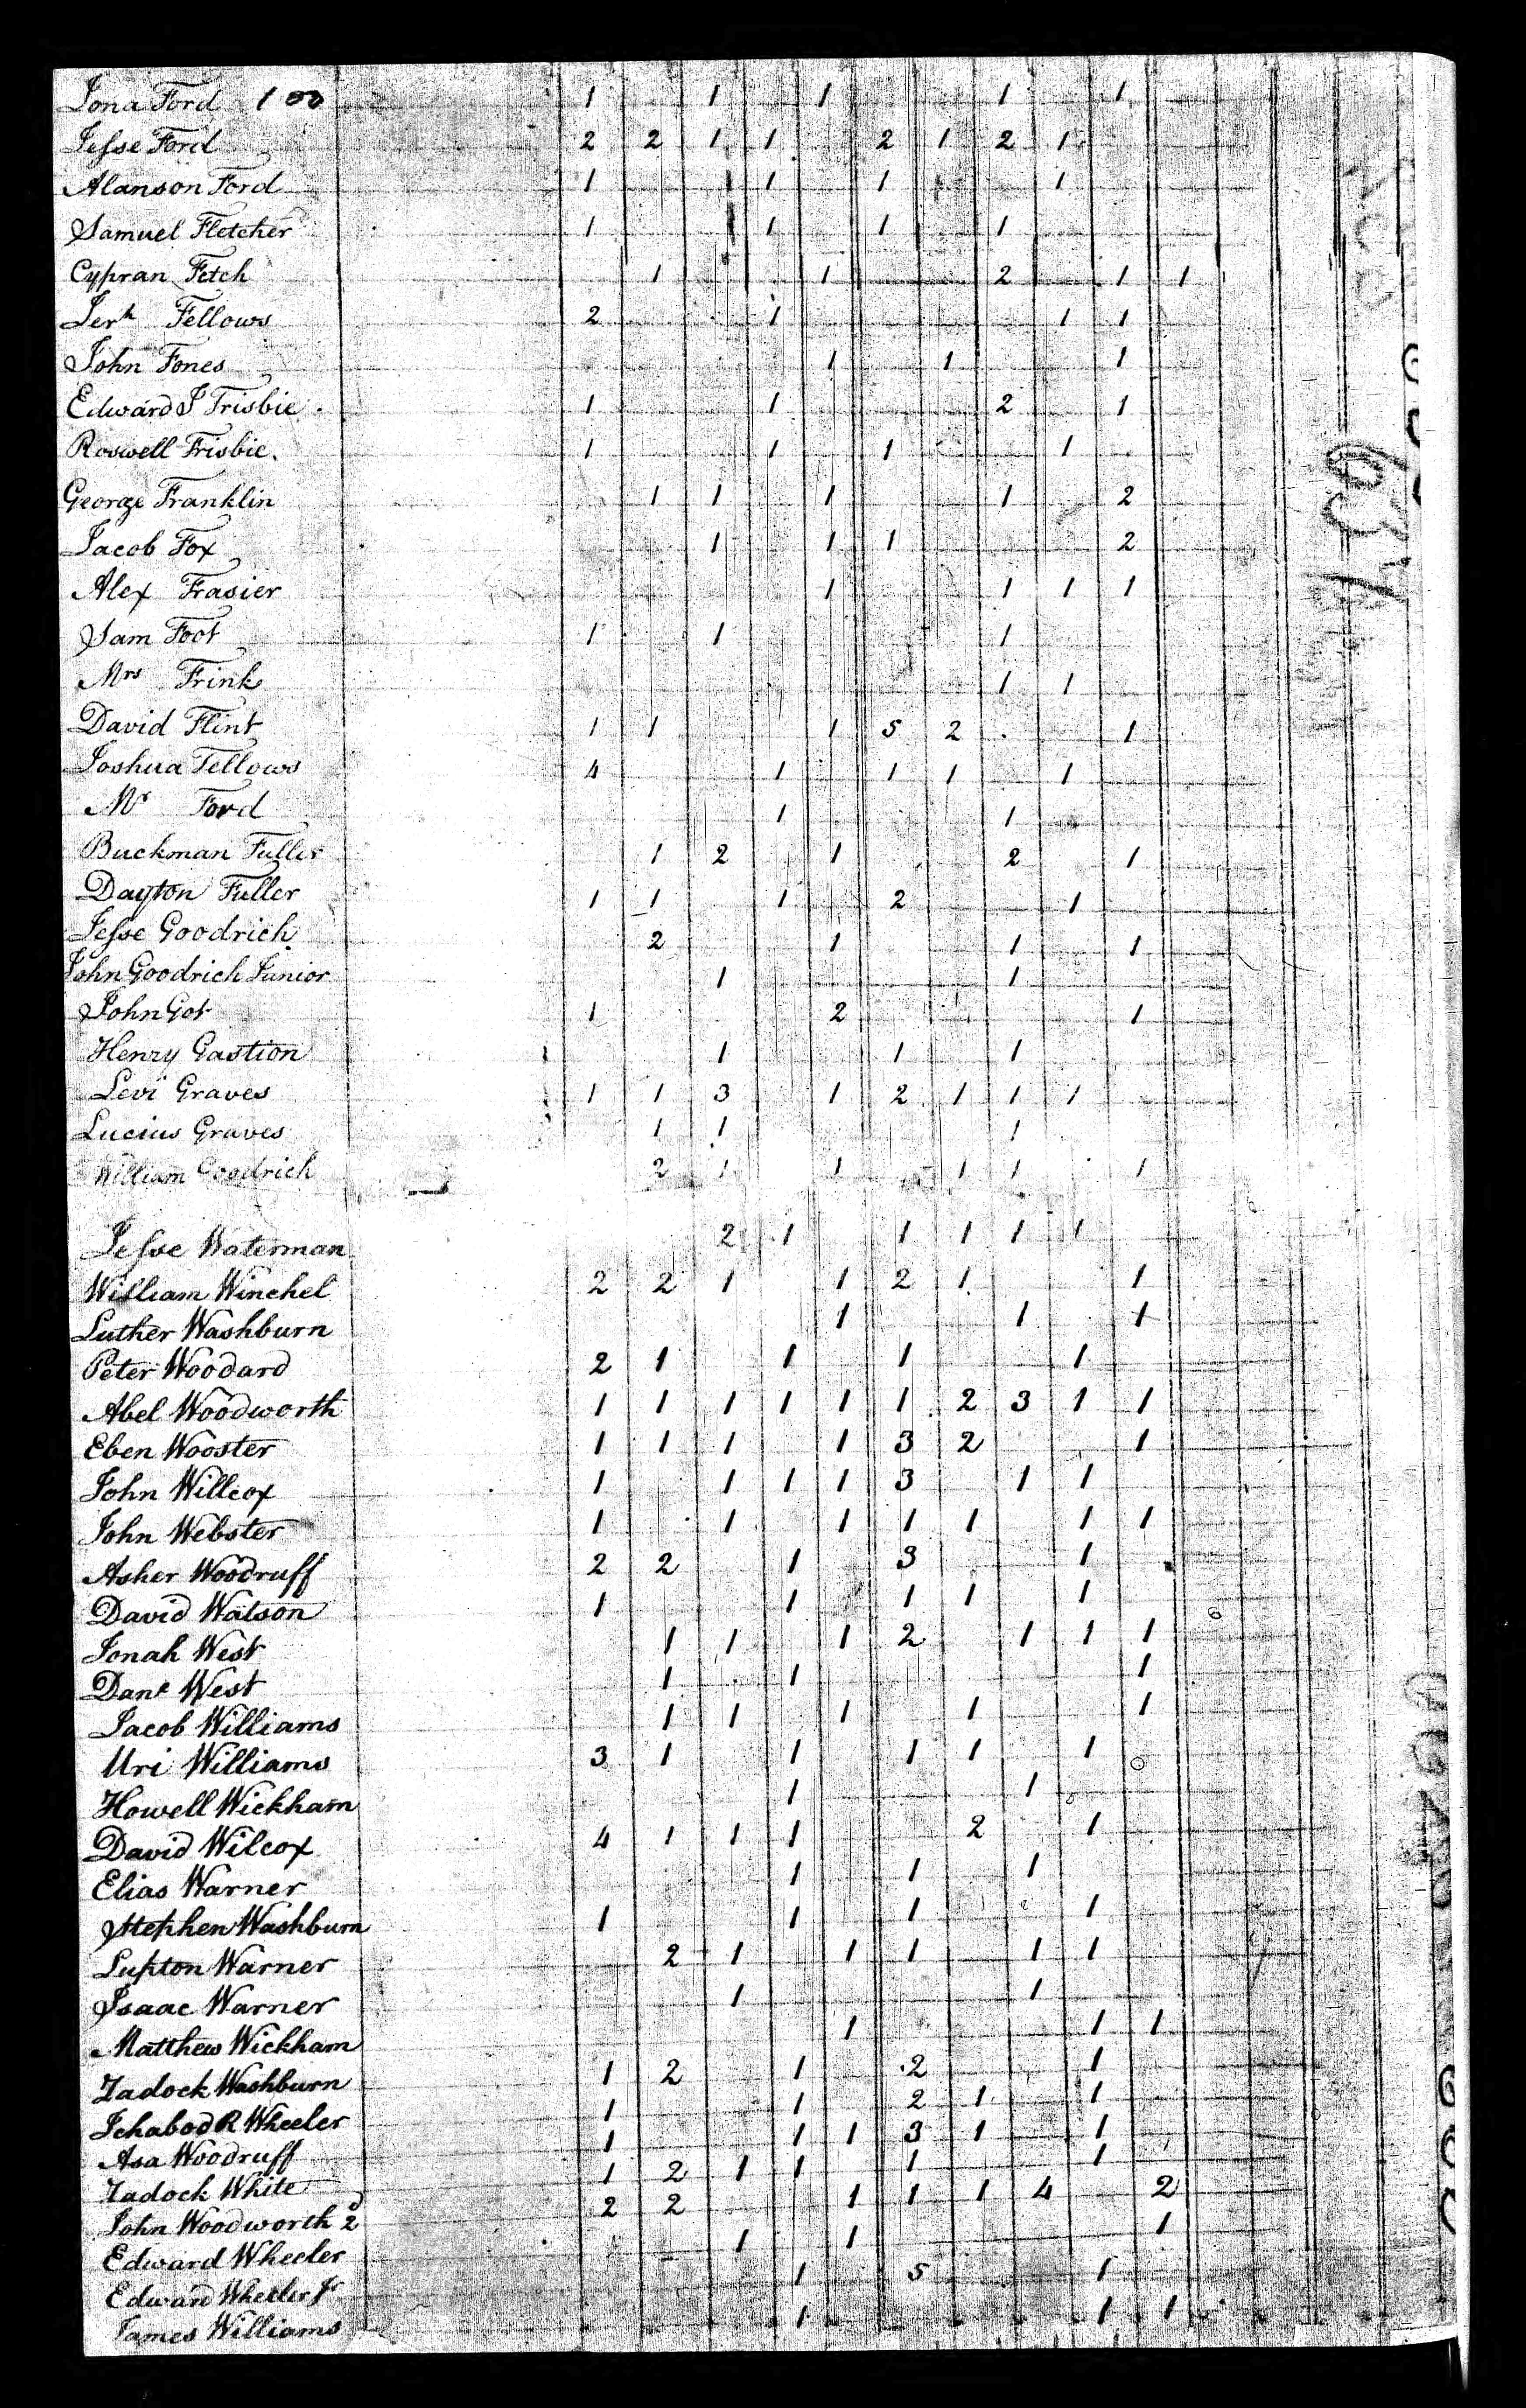 Jona Ford 100 1 1 1 1 1
Jesse Ford 2 2 1 1 2 1 2 1
Alanson Ford 1 1 1 1
Samuel Fletcher 1 1 1 1
Cypran Fetch 1 1 2 1 1
Jerh Fellows 2 1 1 1
John Fones 1 1 1
Edward J Frisbie 1 1 2 1
Roswell Frisbie. 1 1 1 1
George Franklin 1 1 1 1 2
Jacob Fox 1 1 1 2
Alex Frasier 1 1 1 1
Sam Foot 1 1 1
Mrs Frink 1 1
David Flint 1 1 1 5 2 1
Joshua Fellows 4 1 1 1 1
Mr Ford 1 1
Buckman Fuller 1 2 1 2 1
Dayton Fuller 1 1 1 2 1
Jesse Goodrich 2 1 1 1
John Goodrich Junior 1 1
John Got 1 2 1
Henry Gastion 1 1 1
Levi Graves 1 1 3 1 2 1 1 1
Lucius Graves 1 1 1
William Goodrich 2 1 1 1 1 1
Jesse Waterman 2 1 1 1 1 1
William Winchel 2 2 1 1 2 1 1
Luther Washburn 1 1 1
Peter Woodard 2 1 1 1 1
Abel Woodworth 1 1 1 1 1 1 2 3 1 1
Eben Wooster 1 1 1 1 3 2 1
John Willcox 1 1 1 1 3 1 1
John Webster 1 1 1 1 1 1 1
Asher Woodruff 2 2 1 3 1
David Watson 1 1 1 1 1
Jonah West 1 1 1 2 1 1 1
Danl West 1 1 1
Jacob Williams 1 1 1 1 1
Uri Williams 3 1 1 1 1 1
Howell Wickham 1 1
David Wilcox 4 1 1 1 2 1
Elias Warner 1 1 1
Stephen Washburn 1 1 1 1
Lupton Warner 2 1 1 1 1 1
Isaac Warner 1 1
Matthew Wickham 1 1 1
Zadock Washburn 1 2 1 2 1
Ichabod R Wheeler 1 1 2 1 1
Asa Woodruff 1 1 1 3 1 1
Zadock White 1 2 1 1 1 1
John Woodworth 2d 2 2 1 1 1 4 2
Edward Wheeler 1 1 1
Edward Wheeler Jr 1 5 1
James Williams 1 1 1